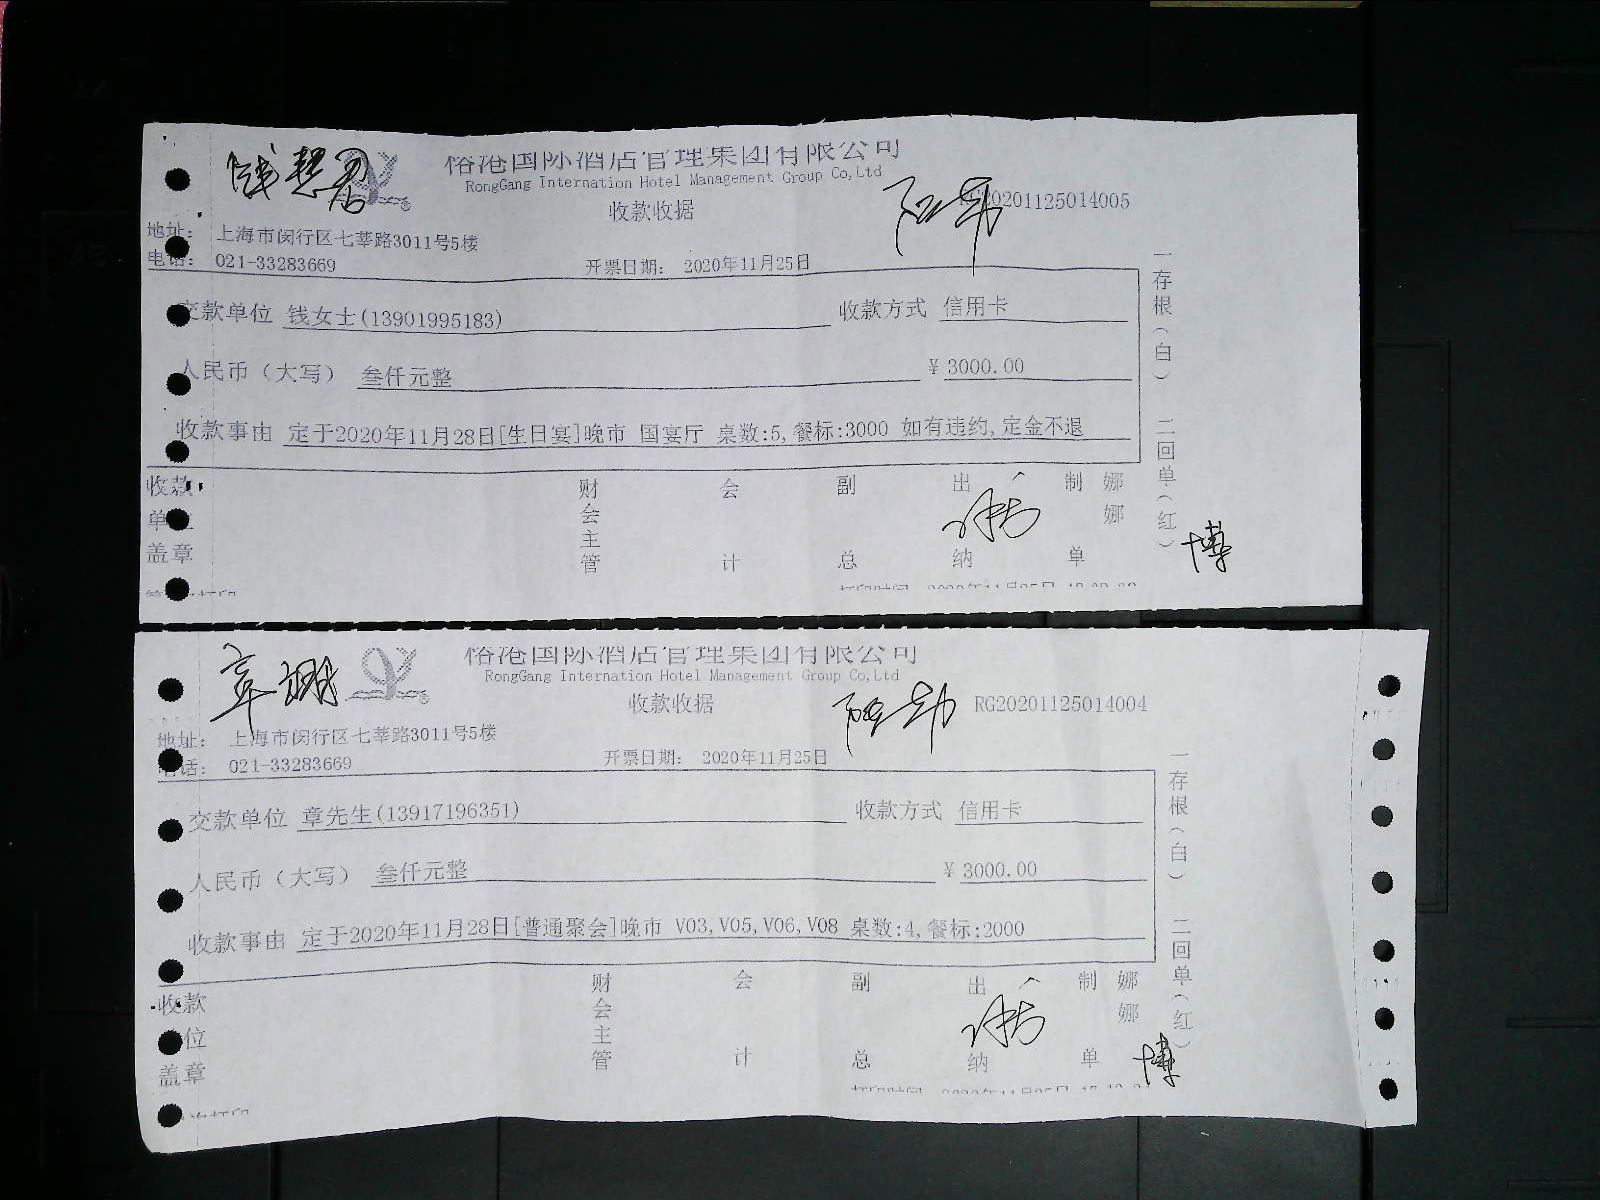 钱慧君
裕港国际酒店管理集团有限公司
RongGang Internation Hotel Management Group Co,Ltd
收款收据
RG20201125014005
地址: 上海市闵行区七莘路3011号5楼
电话: 021-33283669
开票日期: 2020年11月25日
交款单位 钱女士(13901995183)
收款方式 信用卡
人民币（大写） 叁仟元整
¥ 3000.00
收款事由 定于2020年11月28日[生日宴]晚市 国宴厅 桌数:5,餐标:3000 如有违约,定金不退
一存根(白) 二回单(红)
收款单位盖章
财会主管
会计
副总
出纳
制单
娜娜
博
裕港国际酒店管理集团有限公司
RongGang Internation Hotel Management Group Co,Ltd
收款收据
RG20201125014004
地址: 上海市闵行区七莘路3011号5楼
电话: 021-33283669
开票日期: 2020年11月25日
交款单位 章先生(13917196351)
收款方式 信用卡
人民币（大写） 叁仟元整
¥ 3000.00
收款事由 定于2020年11月28日[普通聚会]晚市 V03,V05,V06,V08 桌数:4,餐标:2000
一存根(白) 二回单(红)
收款单位盖章
财会主管
会计
副总
出纳
制单
娜娜
博